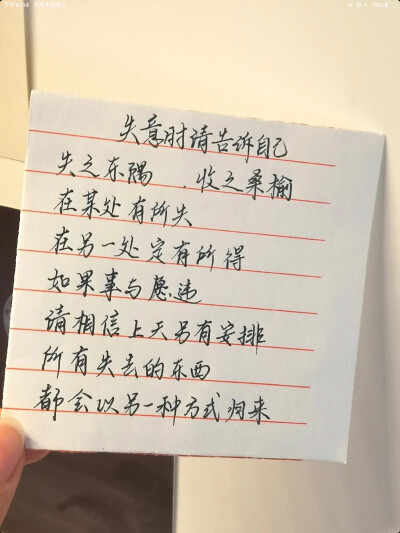 失意时请告诉自己
失之东隅，收之桑榆
在某处有所失
在另一处定有所得
如果事与愿违
请相信上天另有安排
所有失去的东西
都会以另一种方式归来